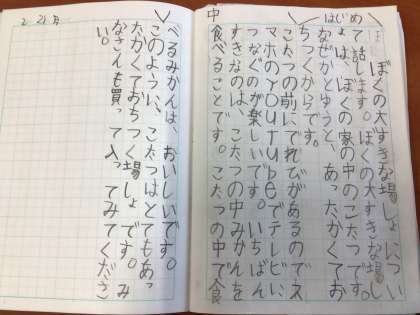 ぼくの大すきな場しょについ
めて話します。ぼくの大すきな場し
ょは、ぼくの家の中のこたつです。
なぜかとゆうと、あったかくてお
ちつくからです。
こたつの前にテレビがあるのでス
マホのYouTubeでテレビに
つなぐのが楽しいです。いちばん
すきなのは、こたつの中みかんを
食べることです。こたつの中で食
べるみかんは、おいしいです。
このように、こたつはとてもあっ
たかくておちつく場しょです。み
なさんも買って入ってみてくださ
い。
中
2 21